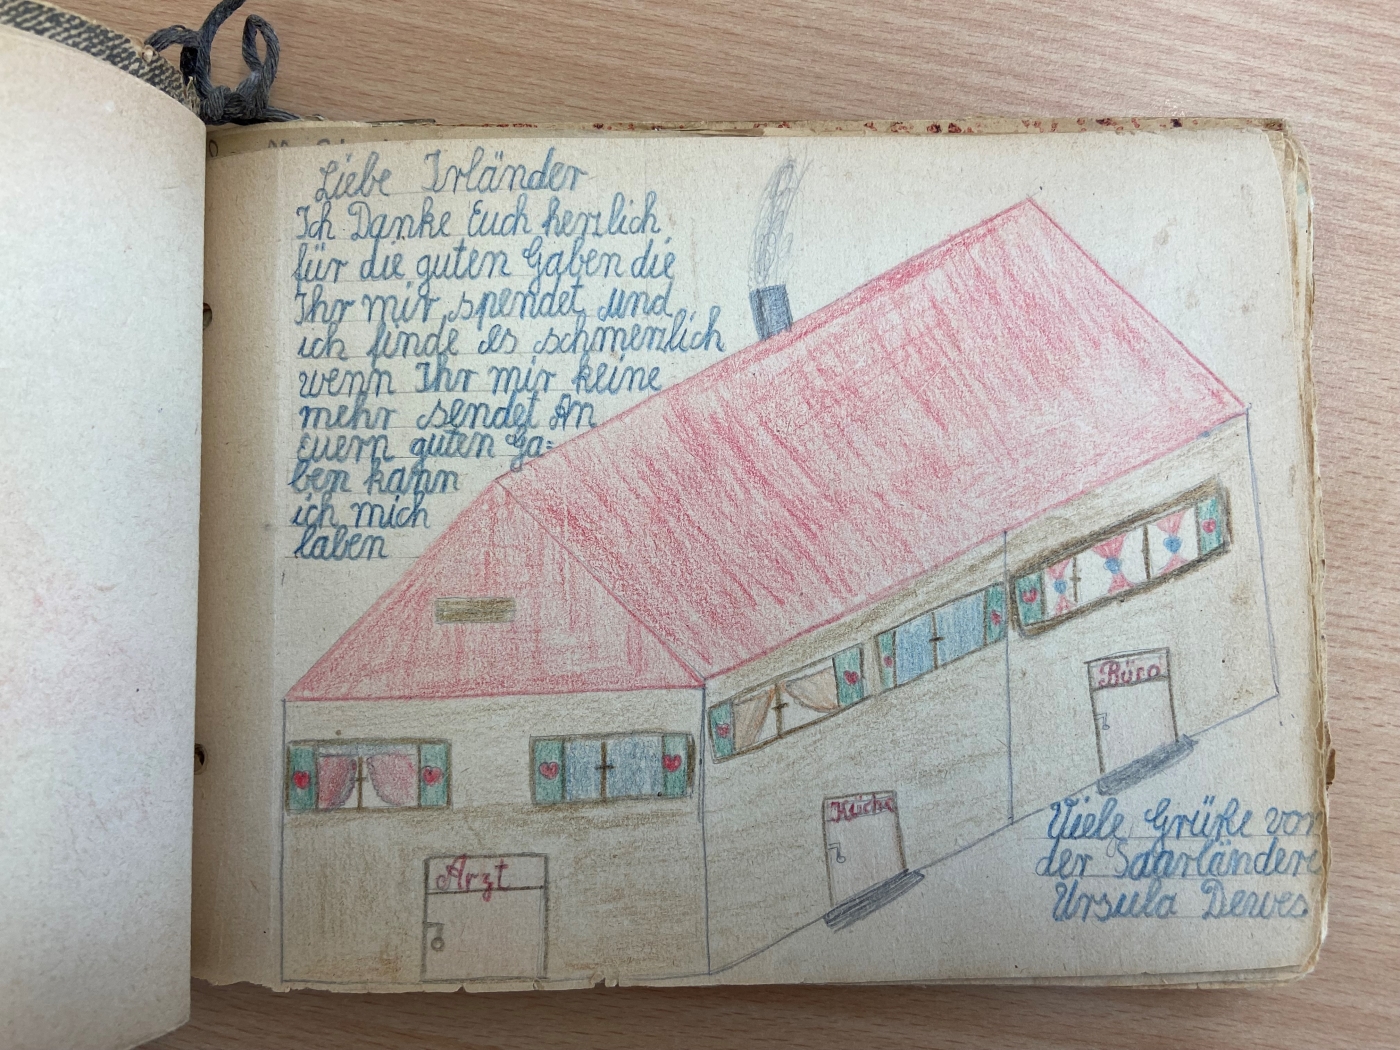 Liebe Irländer
Ich Danke Euch herzlich
für die guten Gaben die
Ihr mir spendet und
ich finde es schmerzlich
wenn Ihr mir keine
mehr sendet An
Euern guten Ga-
ben kann
ich mich
laben
Arzt
Küche
Büro
Viele Grüße von
der Saarländerin
Ursula Dewes